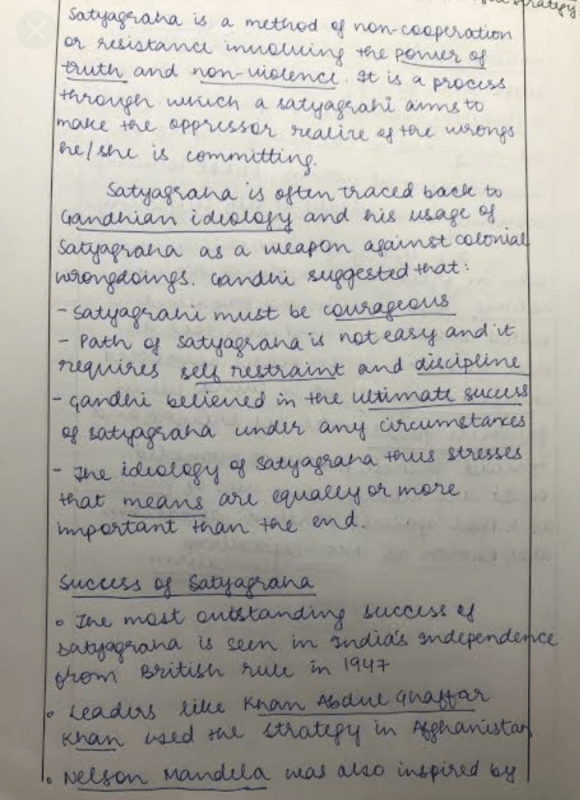 strategy
Satyagraha is a method of non-cooperation
or resistance involving the power of
truth and non-violence. It is a process
through which a satyagrahi aims to
make the oppressor realize of the wrongs
he/she is committing.
Satyagraha is often traced back to
Gandhian ideology and his usage of
Satyagraha as a weapon against colonial
wrongdoings. Gandhi suggested that:
- Satyagrahi must be courageous
- Path of Satyagraha is not easy and it
requires self restraint and discipline
- Gandhi believed in the ultimate success
of satyagraha under any circumstances
- The ideology of Satyagraha thus stresses
that means are equally or more
important than the end.
Success of Satyagraha
• The most outstanding success of
Satyagraha is seen in India's Independence
from British rule in 1947
• Leaders like Khan Abdul Ghaffar
Khan used the strategy in Afghanistan
• Nelson Mandela was also inspired by